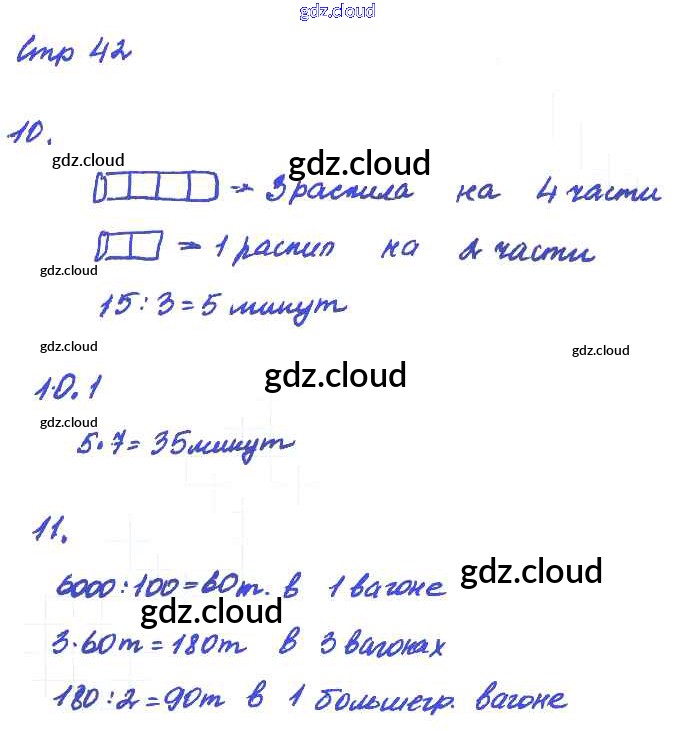 gdz.cloud
Стр 42
10.
gdz.cloud
gdz.cloud
→ 3 распила на 4 части
→ 1 распил на 2 части
gdz.cloud
15 : 3 = 5 минут
gdz.cloud
gdz.cloud
gdz.cloud
10.1
gdz.cloud
5 · 7 = 35 минут
11.
6000 : 100 = 60 т. в 1 вагоне
gdz.cloud
gdz.cloud
3 · 60 т = 180 т в 3 вагонах
180 : 2 = 90 т в 1 большегр. вагоне